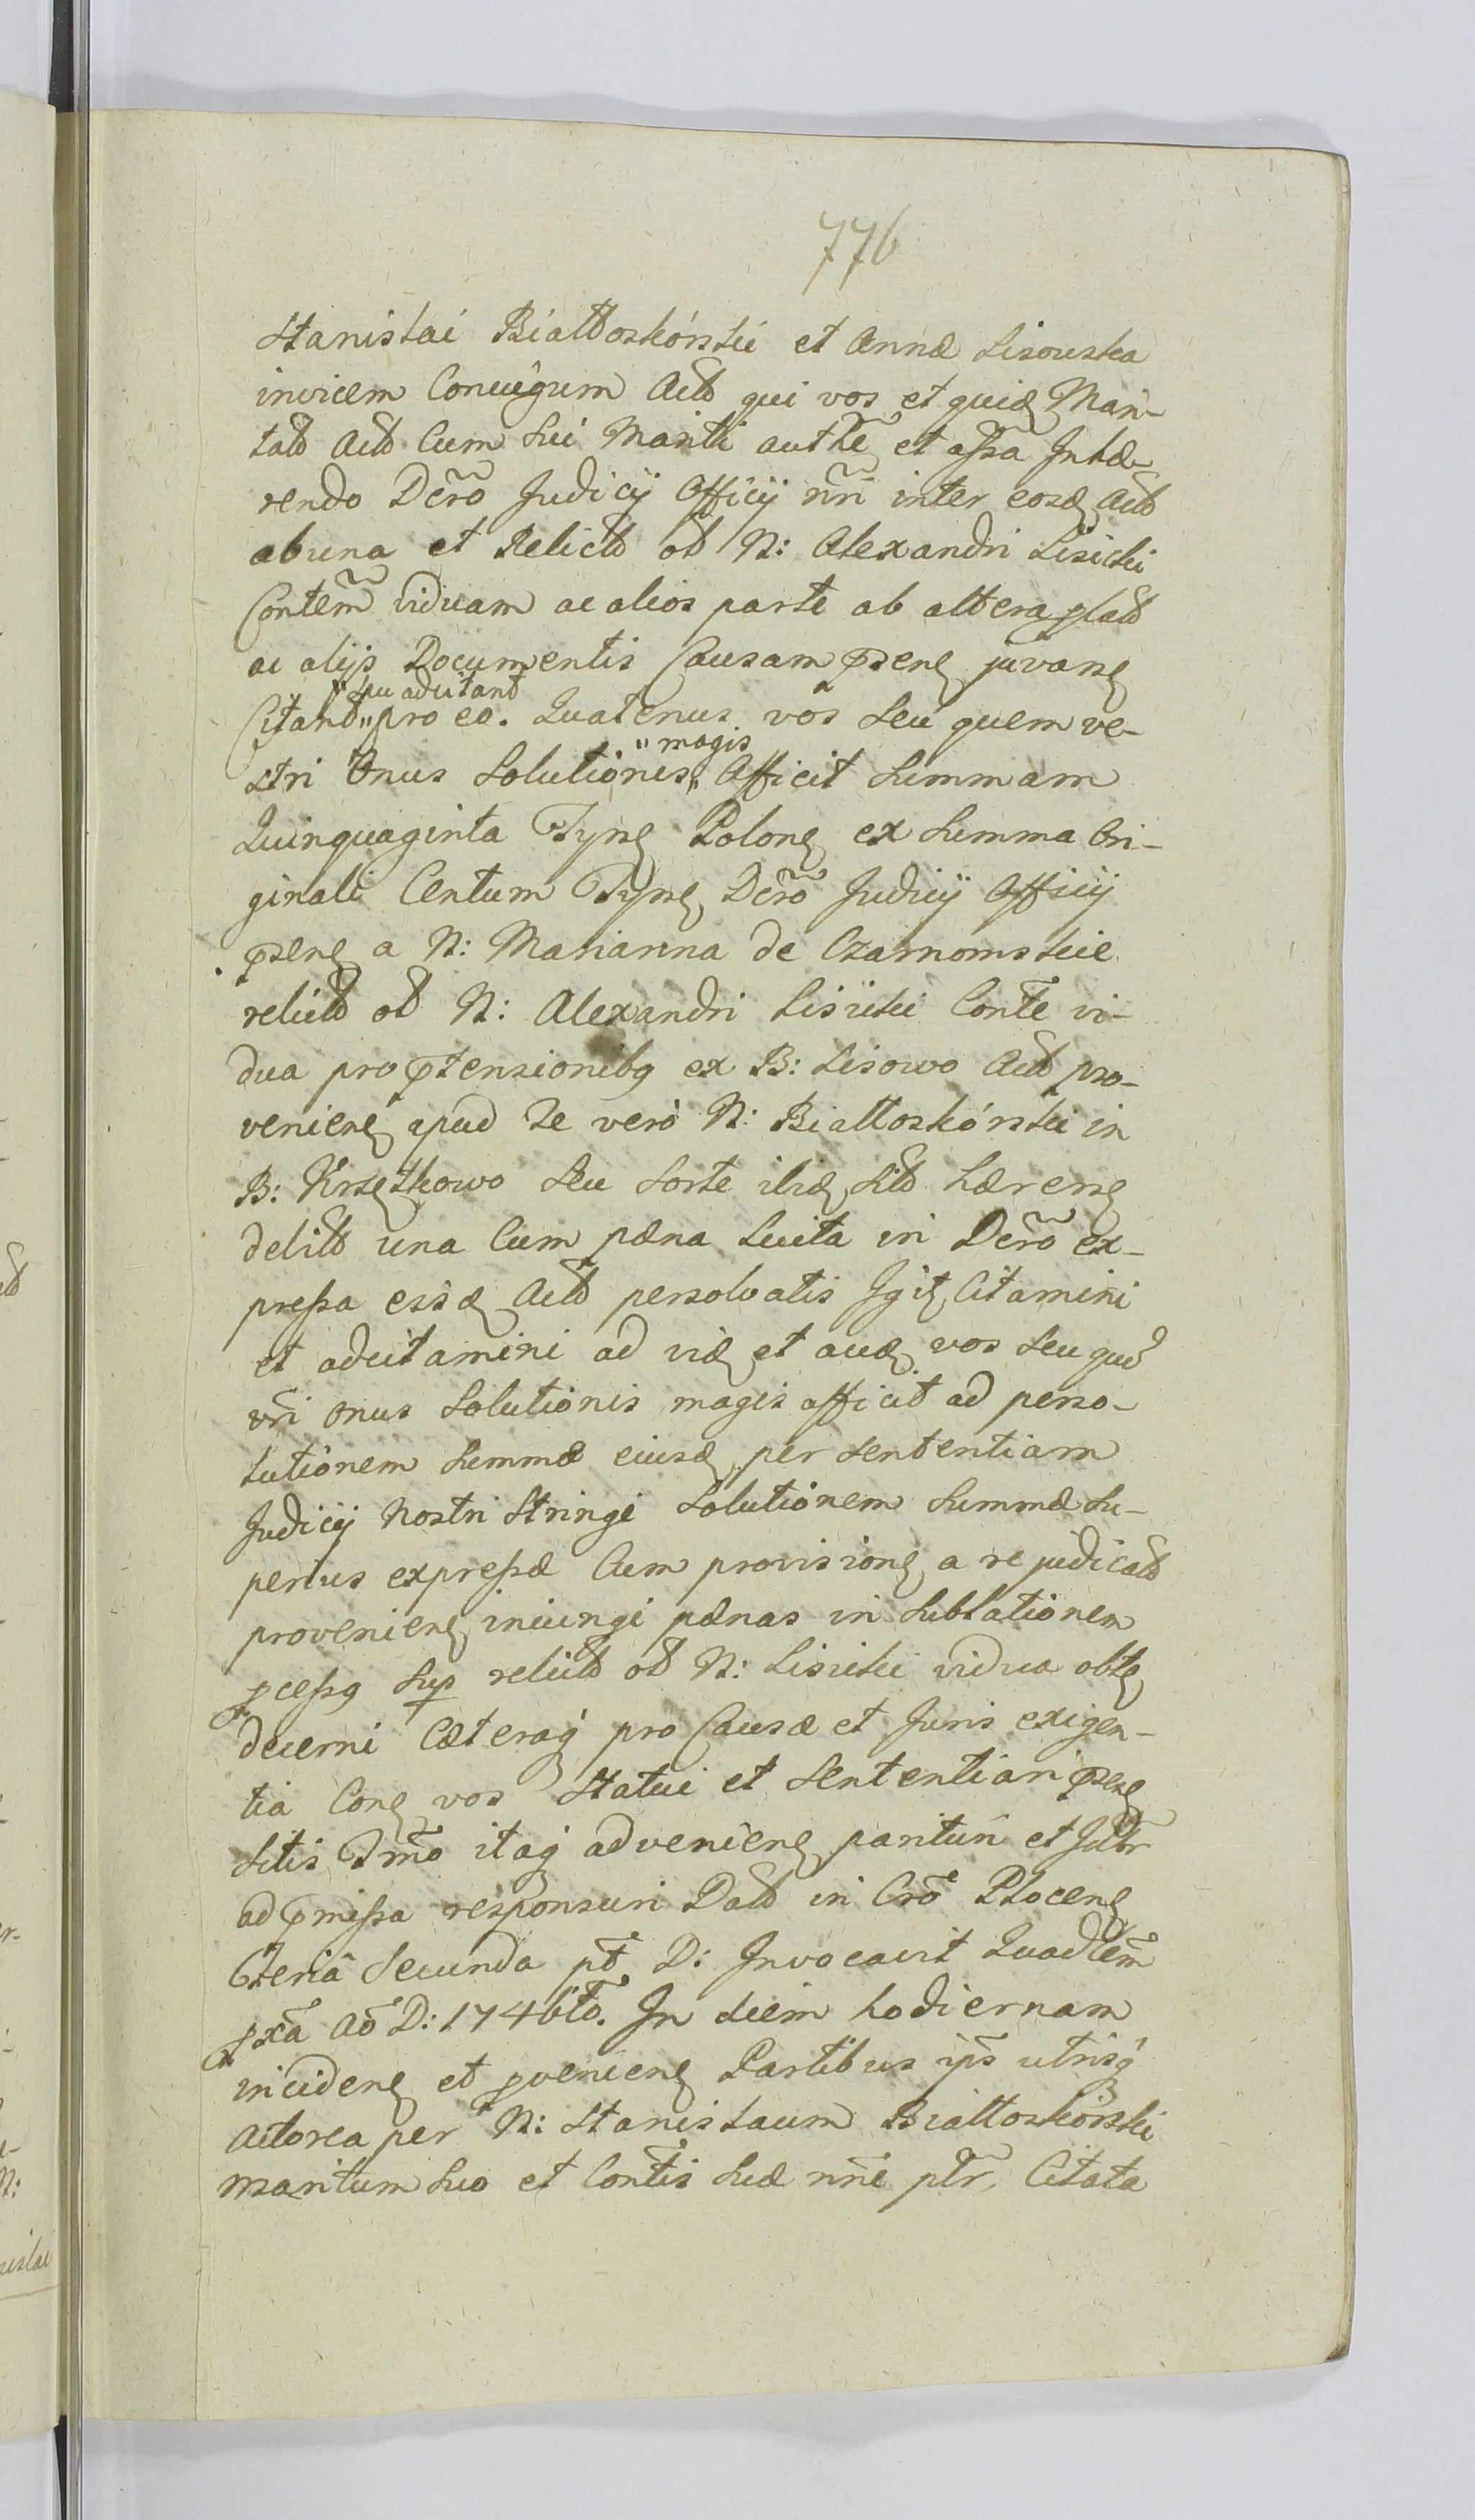 776
Stanislai Białłoskórski et Annæ Lisowska
invicem Coniugum Actõ qui vos et quidẽ Mari-
tatõ Actõ Cum Sui Mariti authẽ et assa Inhæ-
rendo Dcr̃o Judicÿ Officÿ nr̃i inter eosdẽ Actõ
ab una et Relictõ oð N: Alexandri Lisicki
Contẽm viduam ac alios parte ab altera plãtõ
ac alÿs Documentis Causam p̃sene juvane
"seu adcitant
Citant" pro eo. Quatenus vos seu quem ve-
"magis
stri Onus Solutionis" Afficit Summam
Quinquaginta Tyne Polone ex Summa Ori-
ginali Centum Tyne Dcr̃o Judicÿ Officÿ
p̃sene a N: Marianna de Czarnomskie
relictõ oð N: Alexandri Lisicki Cont̃e vi-
dua pro p̃tensionibq ex B: Lisowo Actõ pro-
veniene apud Te verò N: Białłoskórski in
B: Krzętkowo Seu Sorte ibidẽ Sitõ hærene
debitõ una Cum pæna Luita in Dcr̃o ex-
pressa eisdẽ Actõ persolvatis Igitẽ Citamini
et adcitamini ad vidẽ et audẽ vos Seu quẽ
vr̃i onus Solutionis magis afficit ad perso-
lutionem Summæ eiusdẽ per Sententiam
Judicÿ Nostri Stringi Solutionem Summæ Su-
perius expressæ Cum provisione a re judicatõ
proveniene iniungi pænas in Sublationem
pcessq Sup relictõ oð N: Lisicki vidua obte
decerni Cæteraq pro Causæ et Juris exigen-
tia Cone vos Statui et Sententiari p̃sene
Sitis Tm̃o itaq advenience parituri et Jdr̃
ad p̃missa responsuri Datõ in Cr̃o Plocene
Feria Secunda p̃t D: Invocavit Quadlem̃
px̃a Aõ D: 1746tõ. In diem hodiernam
incidene et pveniene Partibus ip̃s utrisq
Actorea per N: Stanislaum Białłoskórski
Maritum Suo et Cont̃is Suæ nñe pt̃r, Citata